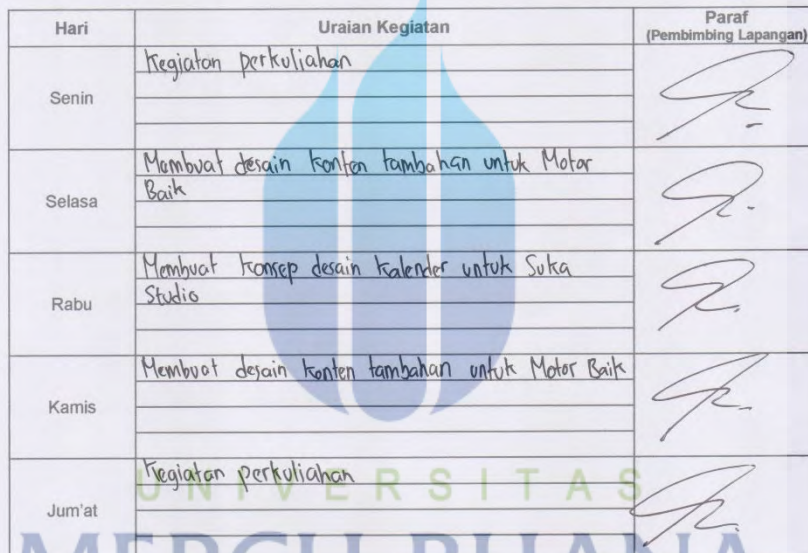 Hari
Uraian Kegiatan
Paraf
(Pembimbing Lapangan)
Senin
Kegiatan perkuliahan
Selasa
Membuat desain konten tambahan untuk Motor
Baik
Rabu
Membuat konsep desain kalender untuk Suka
Studio
Kamis
Membuat desain konten tambahan untuk Motor Baik
Jum'at
Kegiatan perkuliahan
UNIVERSITAS
MERCU BUANA